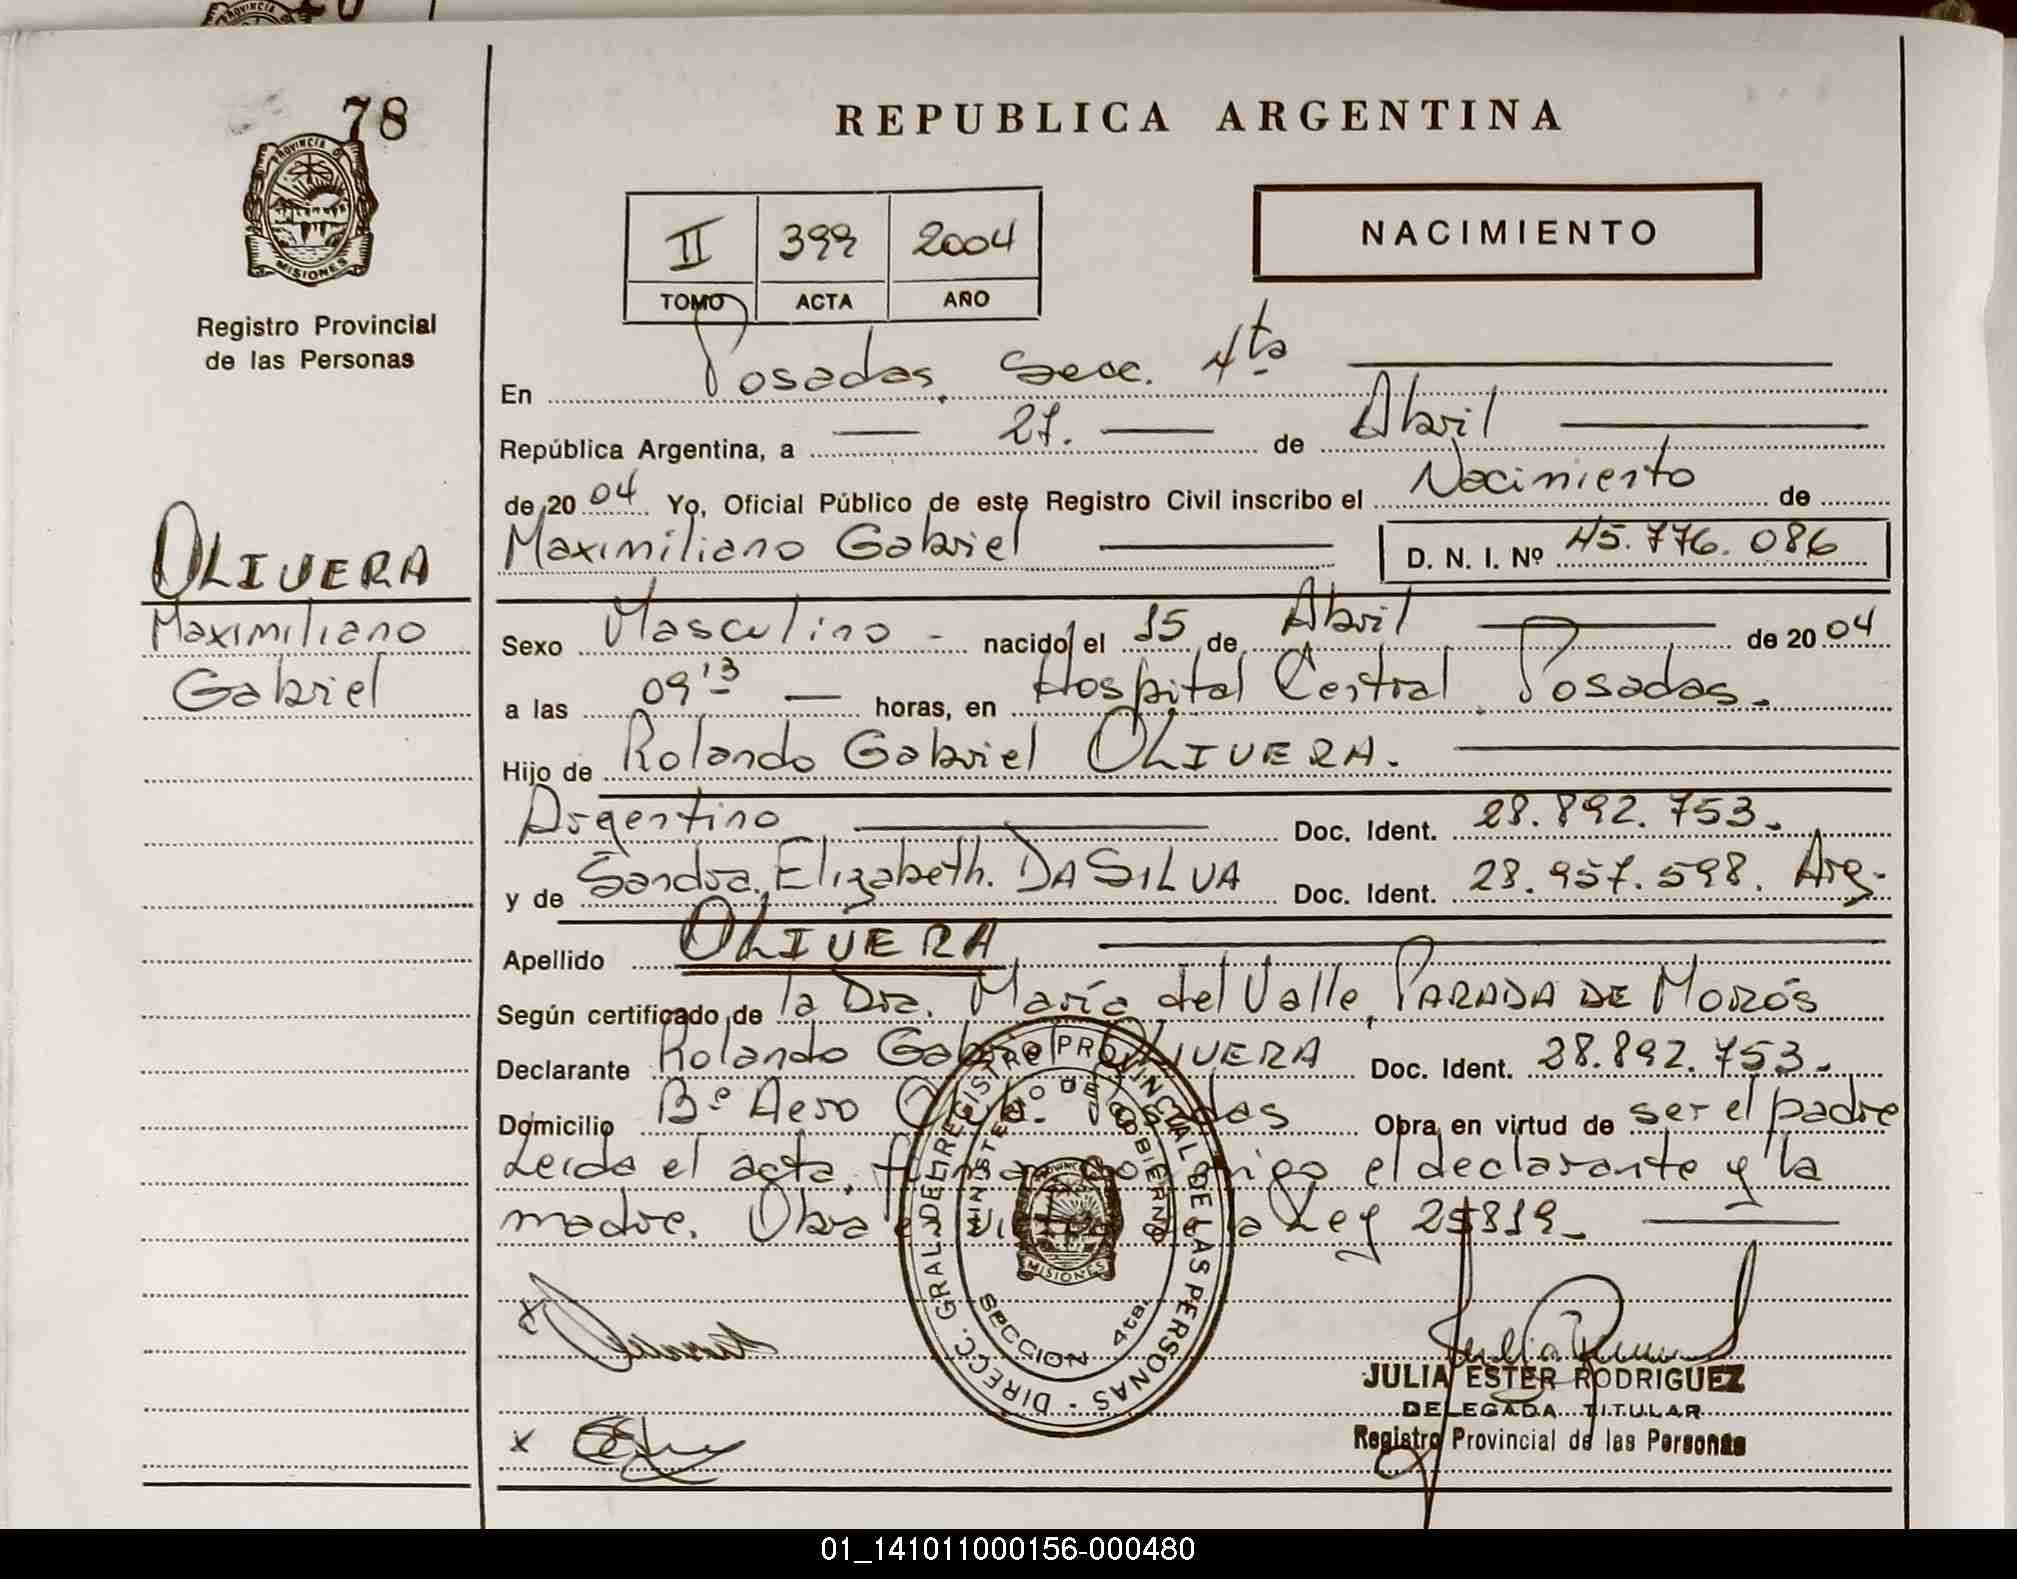 78
PROVINCIA DE
MISIONES
Registro Provincial
de las Personas
OLIVERA
Maximiliano
Gabriel
REPUBLICA ARGENTINA
II 399 2004
TOMO ACTA AÑO
NACIMIENTO
En Posadas, Secc. 4ta
República Argentina, a 27. de Abril
de 2004 Yo, Oficial Público de este Registro Civil inscribo el Nacimiento de
Maximiliano Gabriel D. N. I. Nº 45.776.086
Sexo Masculino - nacido el 15 de Abril de 2004
a las 09 13 horas, en Hospital Central Posadas.
Hijo de Rolando Gabriel OLIVERA.
Argentino Doc. Ident. 28.892.753.
y de Sandra Elizabeth. DA SILVA Doc. Ident. 28.957.598. Arg.
Apellido OLIVERA
Según certificado de la Dra. María del Valle PARADA DE Morós
Declarante Rolando Gabriel OLIVERA Doc. Ident. 28.892.753.
Domicilio Bº Aero Club. Posadas Obra en virtud de ser el padre
Leida el acta, firman conmigo el declarante y la
madre. Obra en virtud de la Ley 25819.
DIRECC. GRAL. DEL REGISTRO PROVINCIAL DE LAS PERSONAS
MINISTERIO DE GOBIERNO
MISIONES
SECCION 4ta.
x
x
JULIA ESTER RODRIGUEZ
DELEGADA TITULAR
Registro Provincial de las Personas
01_141011000156-000480